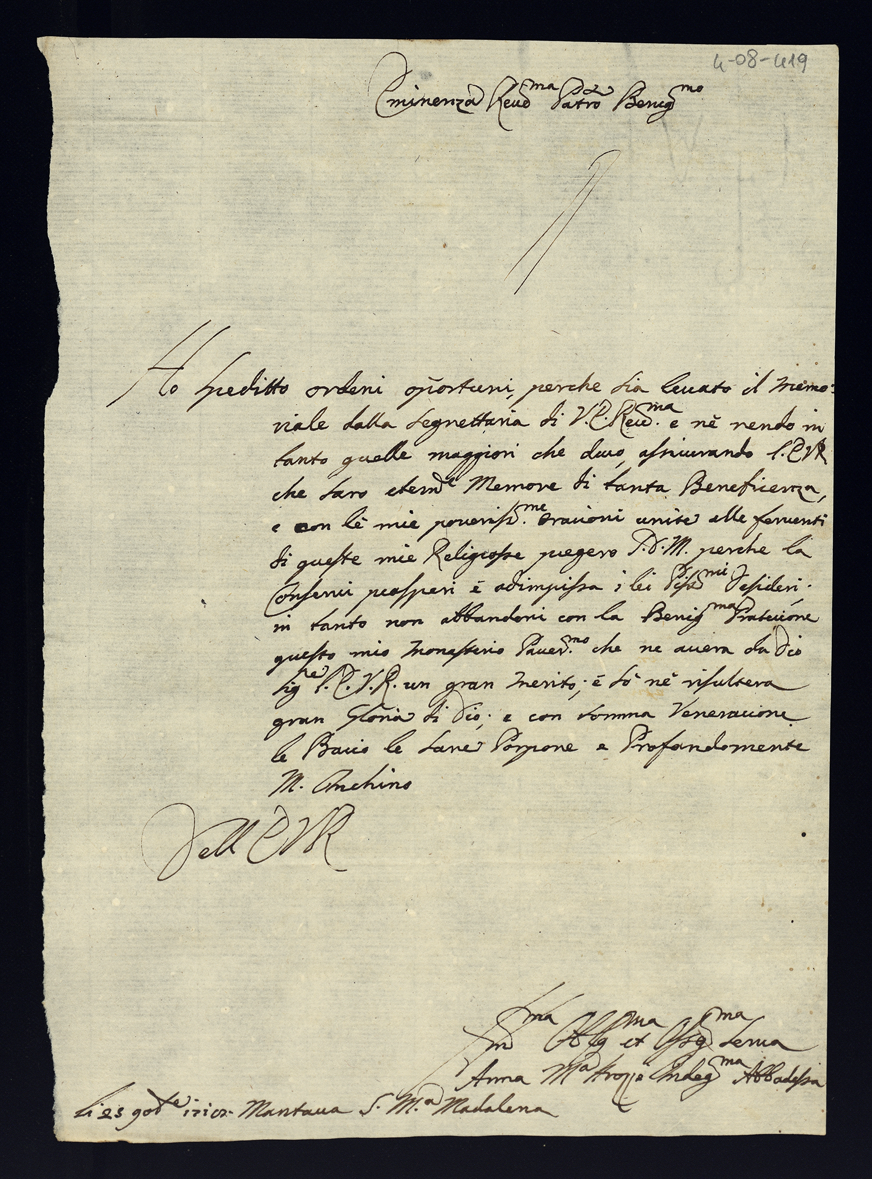 4-08-419
Eminenza Reud.ma Patrõ Benig.mo
Ho speditto ordeni oportuni, perche sia leuato il memo:
riale dalla segrettaria di V.E. Reud.ma e nè rendo in
tanto quelle maggiori che deuo, assicurando l'EVR
che saro Memore di tanta Beneficenza,
e con lè mie pouerissi.me orationi unite alle feruenti
di queste mie Religiosse pregero S.D.M. perche la
Conserui prosperi è adimpissa i lei desideri.
in tanto non abbandoni con la Benig.ma Protecione
questo mio Monasterio Pauer.mo che ne auera da Dio
Sig.re l'E.V.R. un gran merito; è sò nè risultera
gran Gloria di Dio; e con somma Veneracione
le Bacio le Sacre Porpore e Profondomente
M. Inchino
Dell EVR
Hu.ma Oblig.ma et Osseq.ma Serua
Anna M.a Indeg.ma Abbadessa
li 23 Mantaua S. M.a Madalena